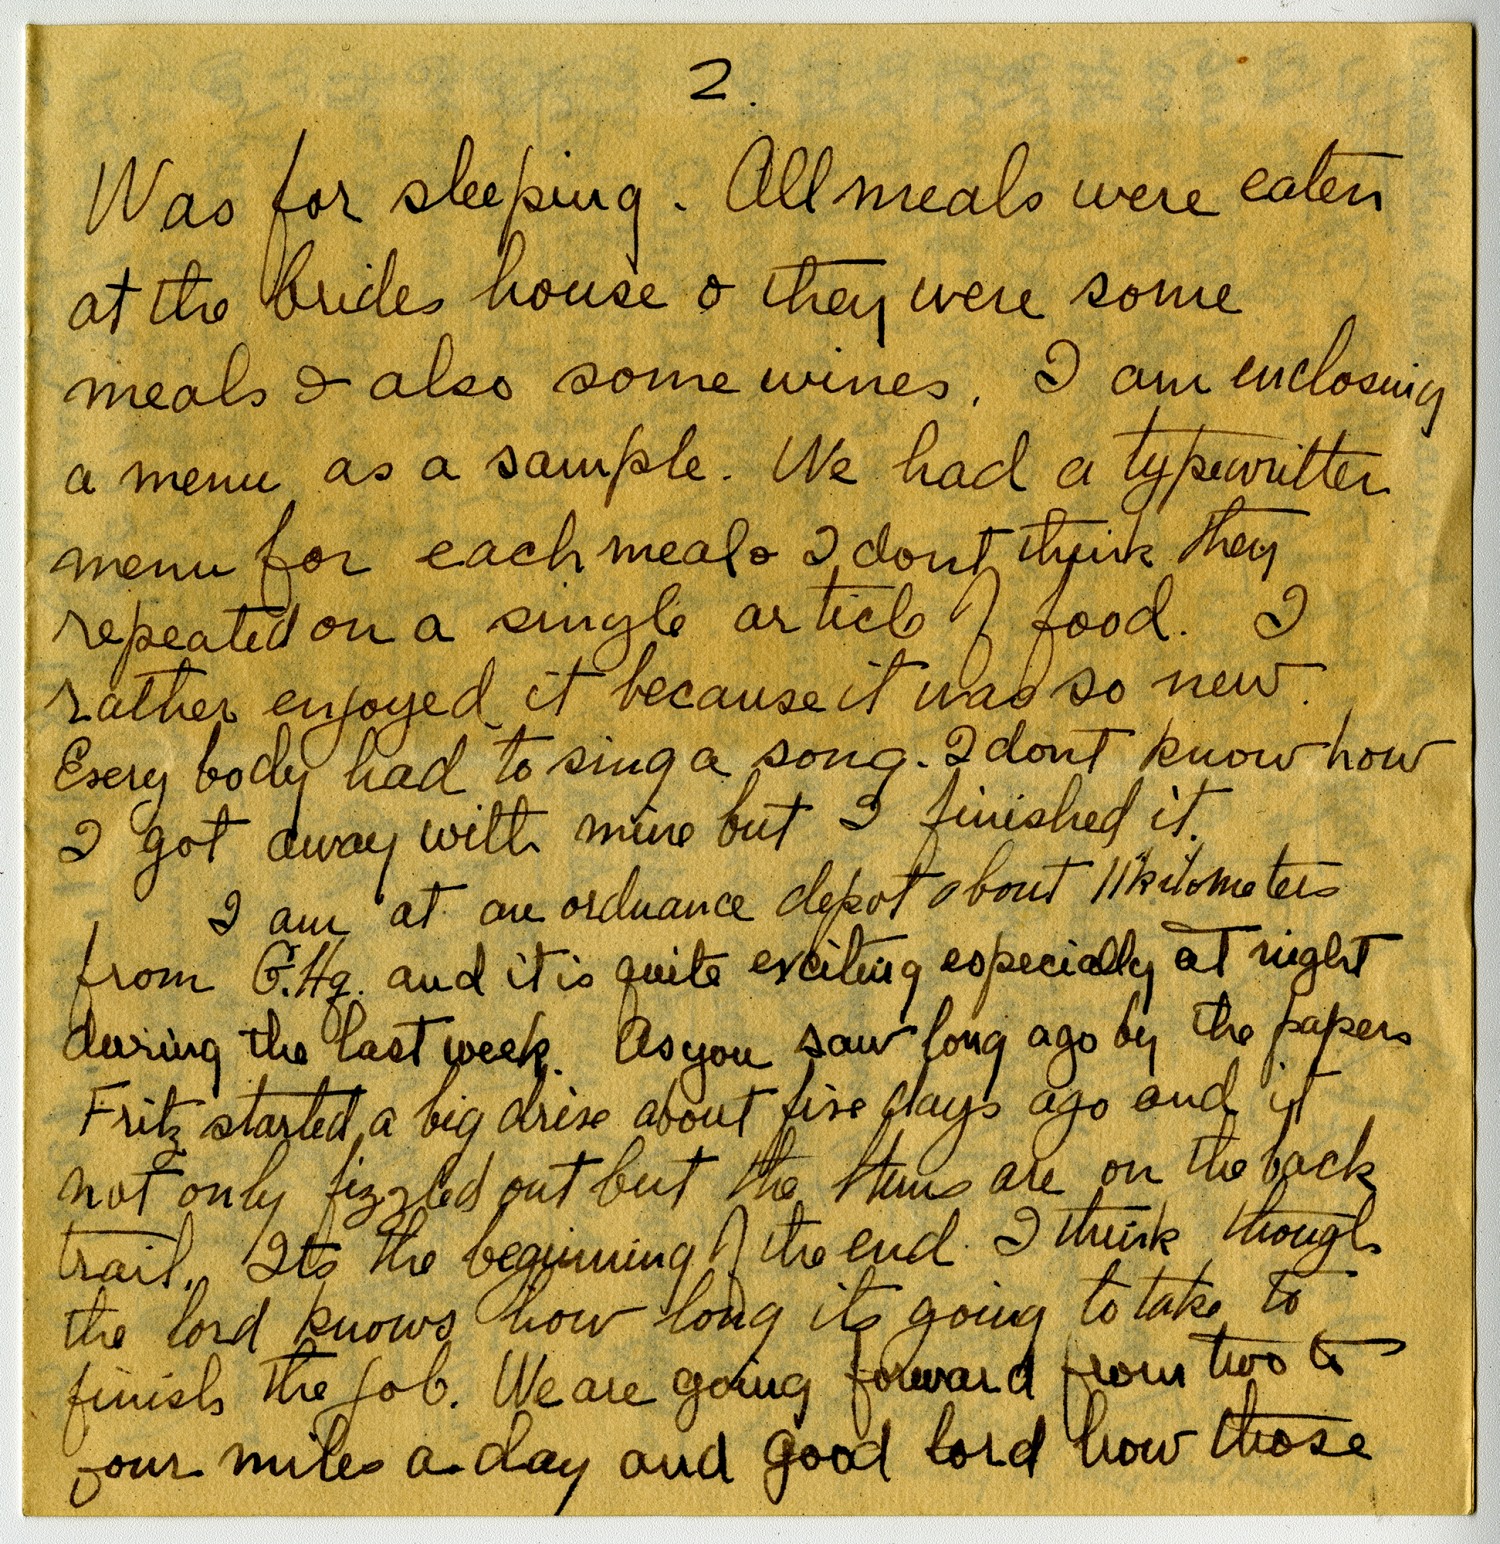 2.
Was for sleeping. All meals were eaten
at the brides house & they were some
meals & also some wines. I am enclosing
a menu as a sample. We had a typewritten
menu for each meal & I dont think they
repeated on a single article of food. I
rather enjoyed it because it was so new.
Every body had to sing a song. I dont know how
I got away with mine but I finished it.
I am at an ordnance depot about 11 kilometers
from G.Hq. and it is quite exciting especially at night
during the last week. As you saw long ago by the papers
Fritz started a big drive about five days ago and it
not only fizzled out but the Huns are on the back
trail. Its the beginning of the end I think though
the lord knows how long its going to take to
finish the job. We are going forward from two to
four miles a day and good lord how those